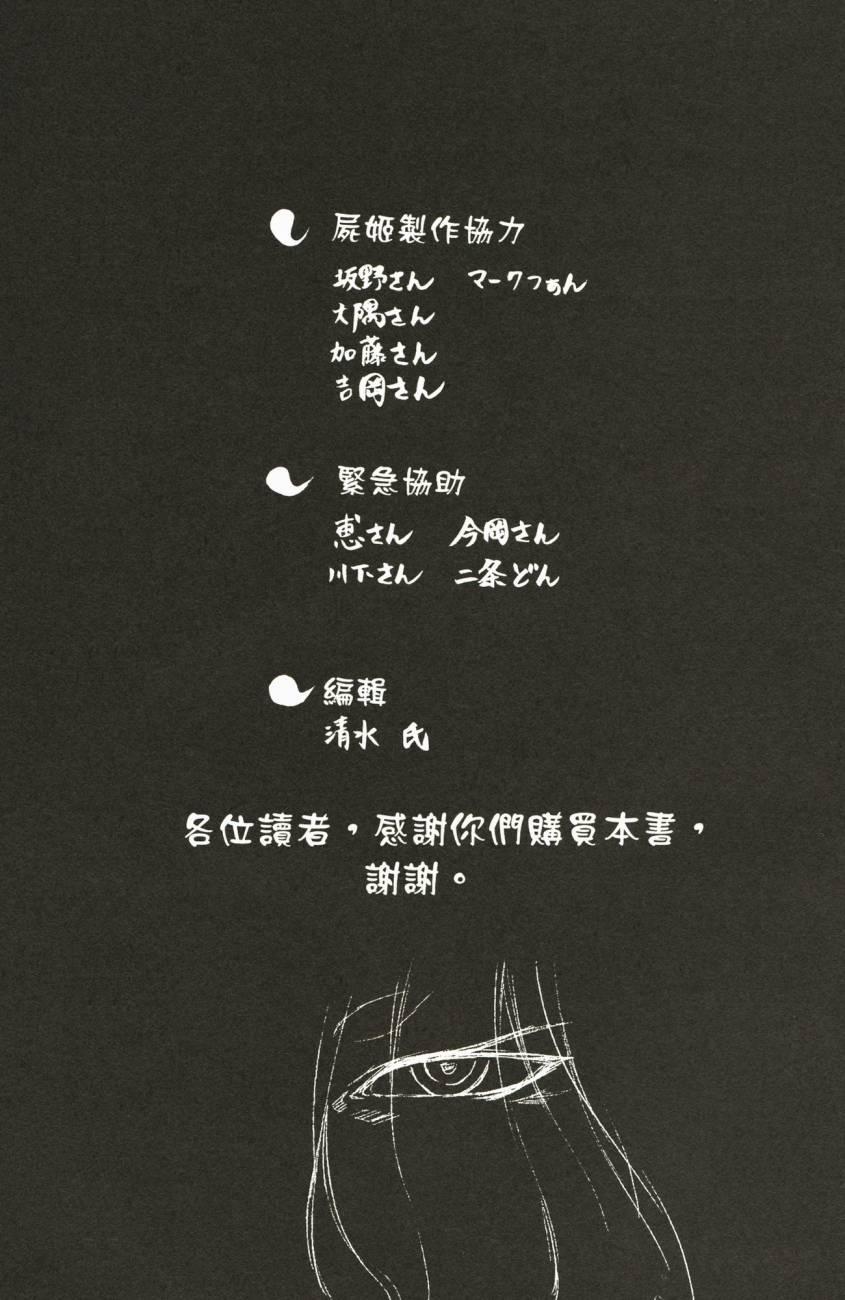 屍姬製作協力
坂野さん　マークつぁん
大隅さん
加藤さん
吉岡さん
緊急協助
恵さん　今岡さん
川下さん　二条どん
編輯
清水 氏
各位讀者，感謝你們購買本書，
謝謝。